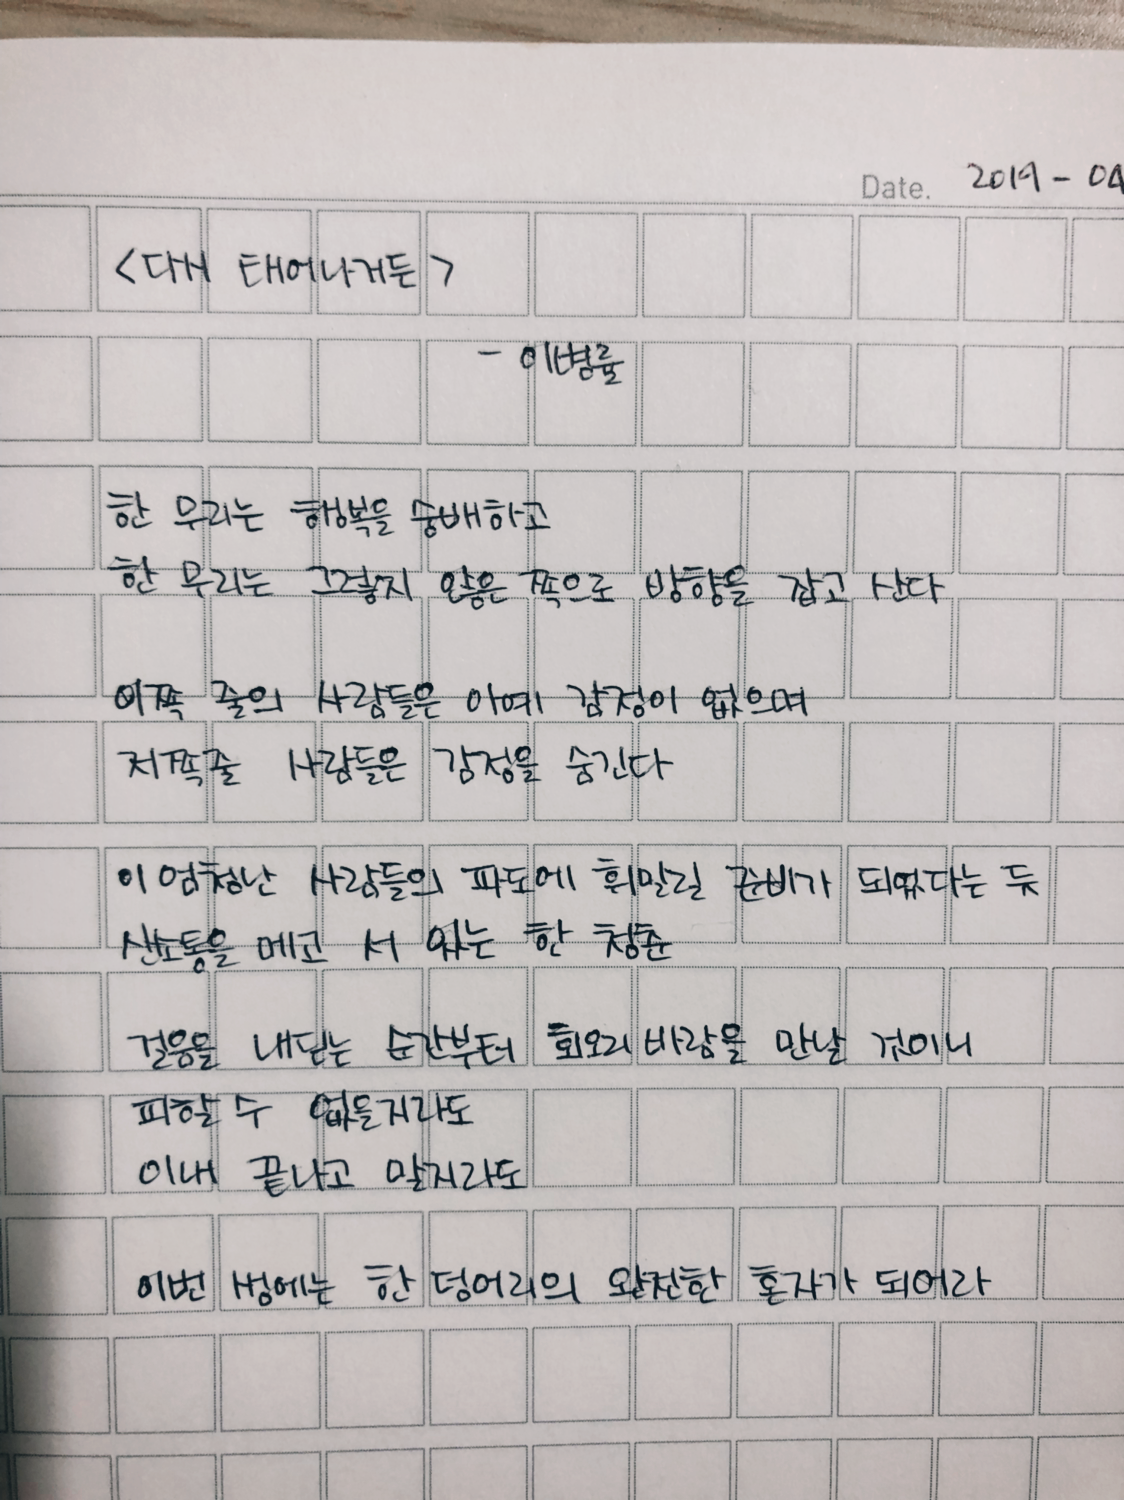 Date. 2019-04
<다시 태어나거든>
- 이병률
한 무리는 행복을 숭배하고
한 무리는 그렇지 않은 쪽으로 방향을 잡고 산다
이쪽 줄의 사람들은 아예 감정이 없으며
저쪽줄 사람들은 감정을 숨긴다
이 엄청난 사람들의 파도에 휘말릴 준비가 되었다는 듯
산소통을 메고 서 있는 한 청춘
걸음을 내딛는 순간부터 회오리바람을 만날 것이니
피할 수 없을지라도
이내 끝나고 말지라도
이번 생에는 한 덩어리의 완전한 혼자가 되어라